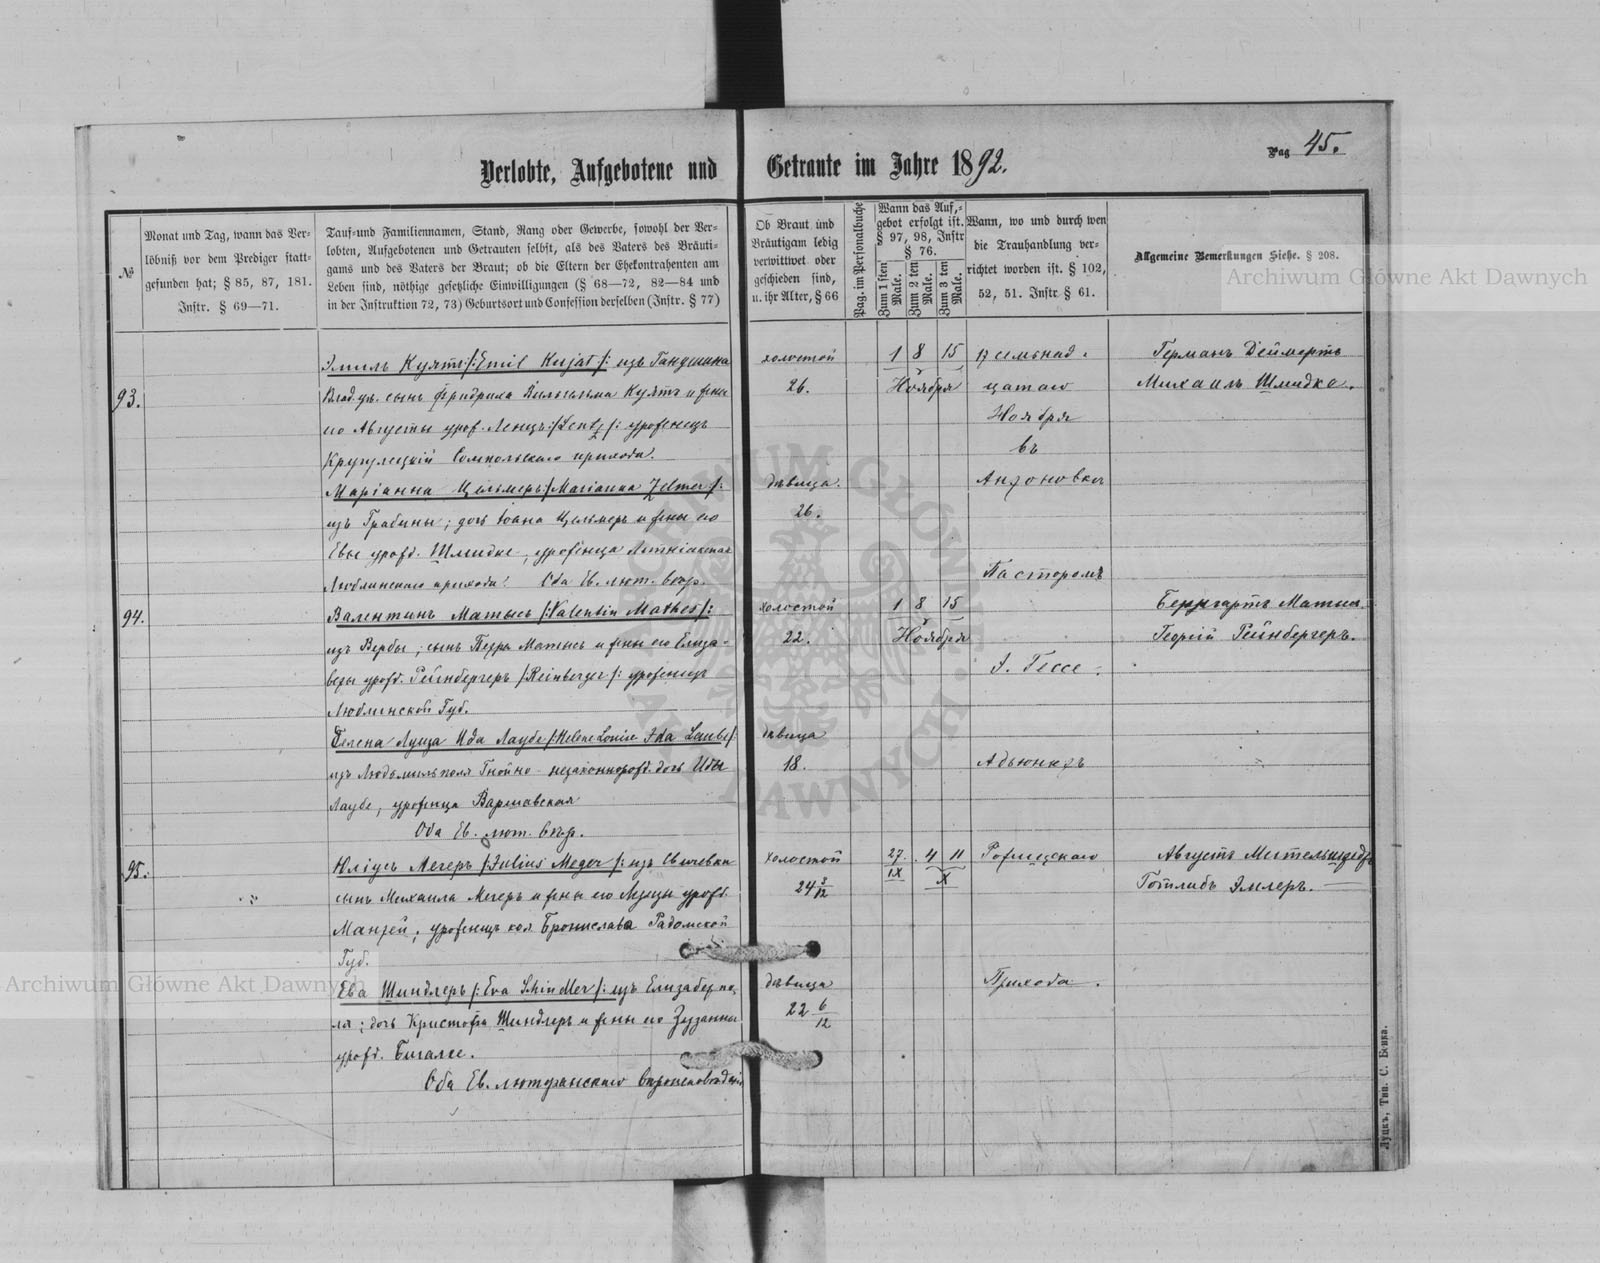 Verlobte, Aufgebotene und Getraute im Jahre 1892.
Pag 45.
№
Monat und Tag, wann das Ver-
löbniß vor dem Prediger statt-
gefunden hat; § 85, 87, 181.
Instr. § 69—71.
Tauf-und Familiennamen, Stand, Rang oder Gewerbe, sowohl der Ver-
lobten, Aufgebotenen und Getrauten selbst, als des Vaters des Bräuti-
gams und des Vaters der Braut; ob die Eltern der Ehekontrahenten am
Leben sind, nöthige gesetzliche Einwilligungen (§ 68—72, 82—84 und
in der Instruktion 72, 73) Geburtsort und Confession derselben (Instr. § 77)
Ob Braut und
Bräutigam ledig
verwittwet oder
geschieden sind,
u. ihr Alter, § 66
Pag. im Personalbuche
Wann das Auf-
gebot erfolgt ist.
§ 97, 98, Instr
§ 76.
Zum 1 sten Male.
Zum 2 ten Male.
Zum 3 ten Male.
Wann, wo und durch wen
die Trauhandlung ver-
richtet worden ist. § 102,
52, 51. Instr § 61.
Allgemeine Bemerkungen Siehe. § 208.
93.
Эмиль Куятъ /:Emil Kujat:/ изъ
Влад. ув. сынъ Фридриха Вильгельма Куятъ и жены
его Августы урож. Ленцъ /:Lentz:/ уроженецъ
Сомпольскаго прихода.
Маріанна Цельмеръ /:Marianna Zelmer/:
изъ Грабины; дочь Іоана Цельмеръ и жены его
Евы урожд. Шмидке, уроженица
Люблинскаго прихода. Оба Ев. лют. вѣр.
холостой
26.
дѣвица.
26.
1 8 15
Ноября
Всемьнад-
цатаго
Ноября
въ
Антоновкѣ
Пасторомъ
Германъ Деймертъ
Михаилъ Шмидке.
94.
Валентинъ Матысъ /:Valentin Mathes/:
изъ Вербы; сынъ Петра Матысъ и жены его Елиза-
веты урожд. Рейнбергеръ /:Reinberger/: уроженецъ
Люблинской Губ.
Гелена Луиза Ида Лаубе /:Helene Louise Ida Laube/:
изъ Людьмильполя Гнойно - незаконнорожд. дочь Иды
Лаубе, уроженица Варшавская
Оба Ев. лют. вѣр.
холостой
22.
дѣвица
18.
1 8 15
Ноября
Э. Гессе.
Адьюнктъ
Бернгартъ Матыс
Георгій Рейнбергеръ.
95.
Юліусъ Мегеръ /:Julius Meger/: изъ
сынъ Михаила Мегеръ и жены его Луизы урожд.
Манзей; уроженецъ кол. Брониславъ Радомской
Губ.
Ева Шиндлеръ /:Eva Shindler/: изъ Елизаветпо-
ля; дочь Кристофа Шиндлеръ и жены его Зузанны
урожд. Бигалке.
Оба Ев. лютеранскаго вѣроисповѣданія
холостой
24 3/12
дѣвица
22 6/12
27. 4 11
IX X
Рожищскаго
Прихода.
Августъ Мительштедтъ
Готлибъ Эмлеръ.
Луцкъ, Тип. С. Бенка.
Archiwum Główne Akt Dawnych
Archiwum Główne Akt Dawnych
ARCHIWUM GŁÓWNE AKT DAWNYCH